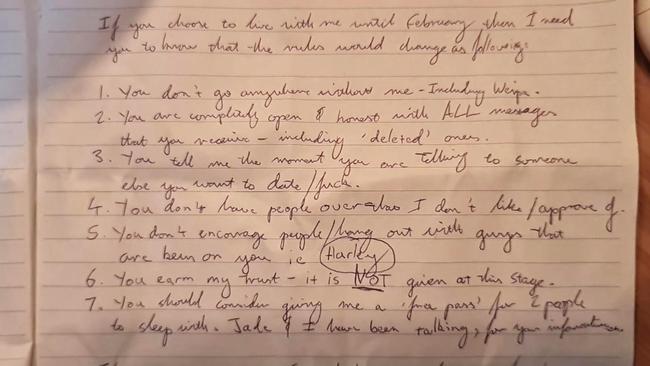 If you choose to live with me until February then I need
you to know that the rules would change as following:
1. You don't go anywhere without me - Including Weipa.
2. You are completely open & honest with ALL messages
that you receive - including 'deleted' ones.
3. You tell me the moment you are talking to someone
else you want to date/fuck.
4. You don't have people over who I don't like/approve of.
5. You don't encourage people/hang out with guys that
are keen on you ie Harley
6. You earn my trust - it is NOT given at this stage.
7. You should consider giving me a 'free pass' for 2 people
to sleep with. Jade & I have been talking, for your information.